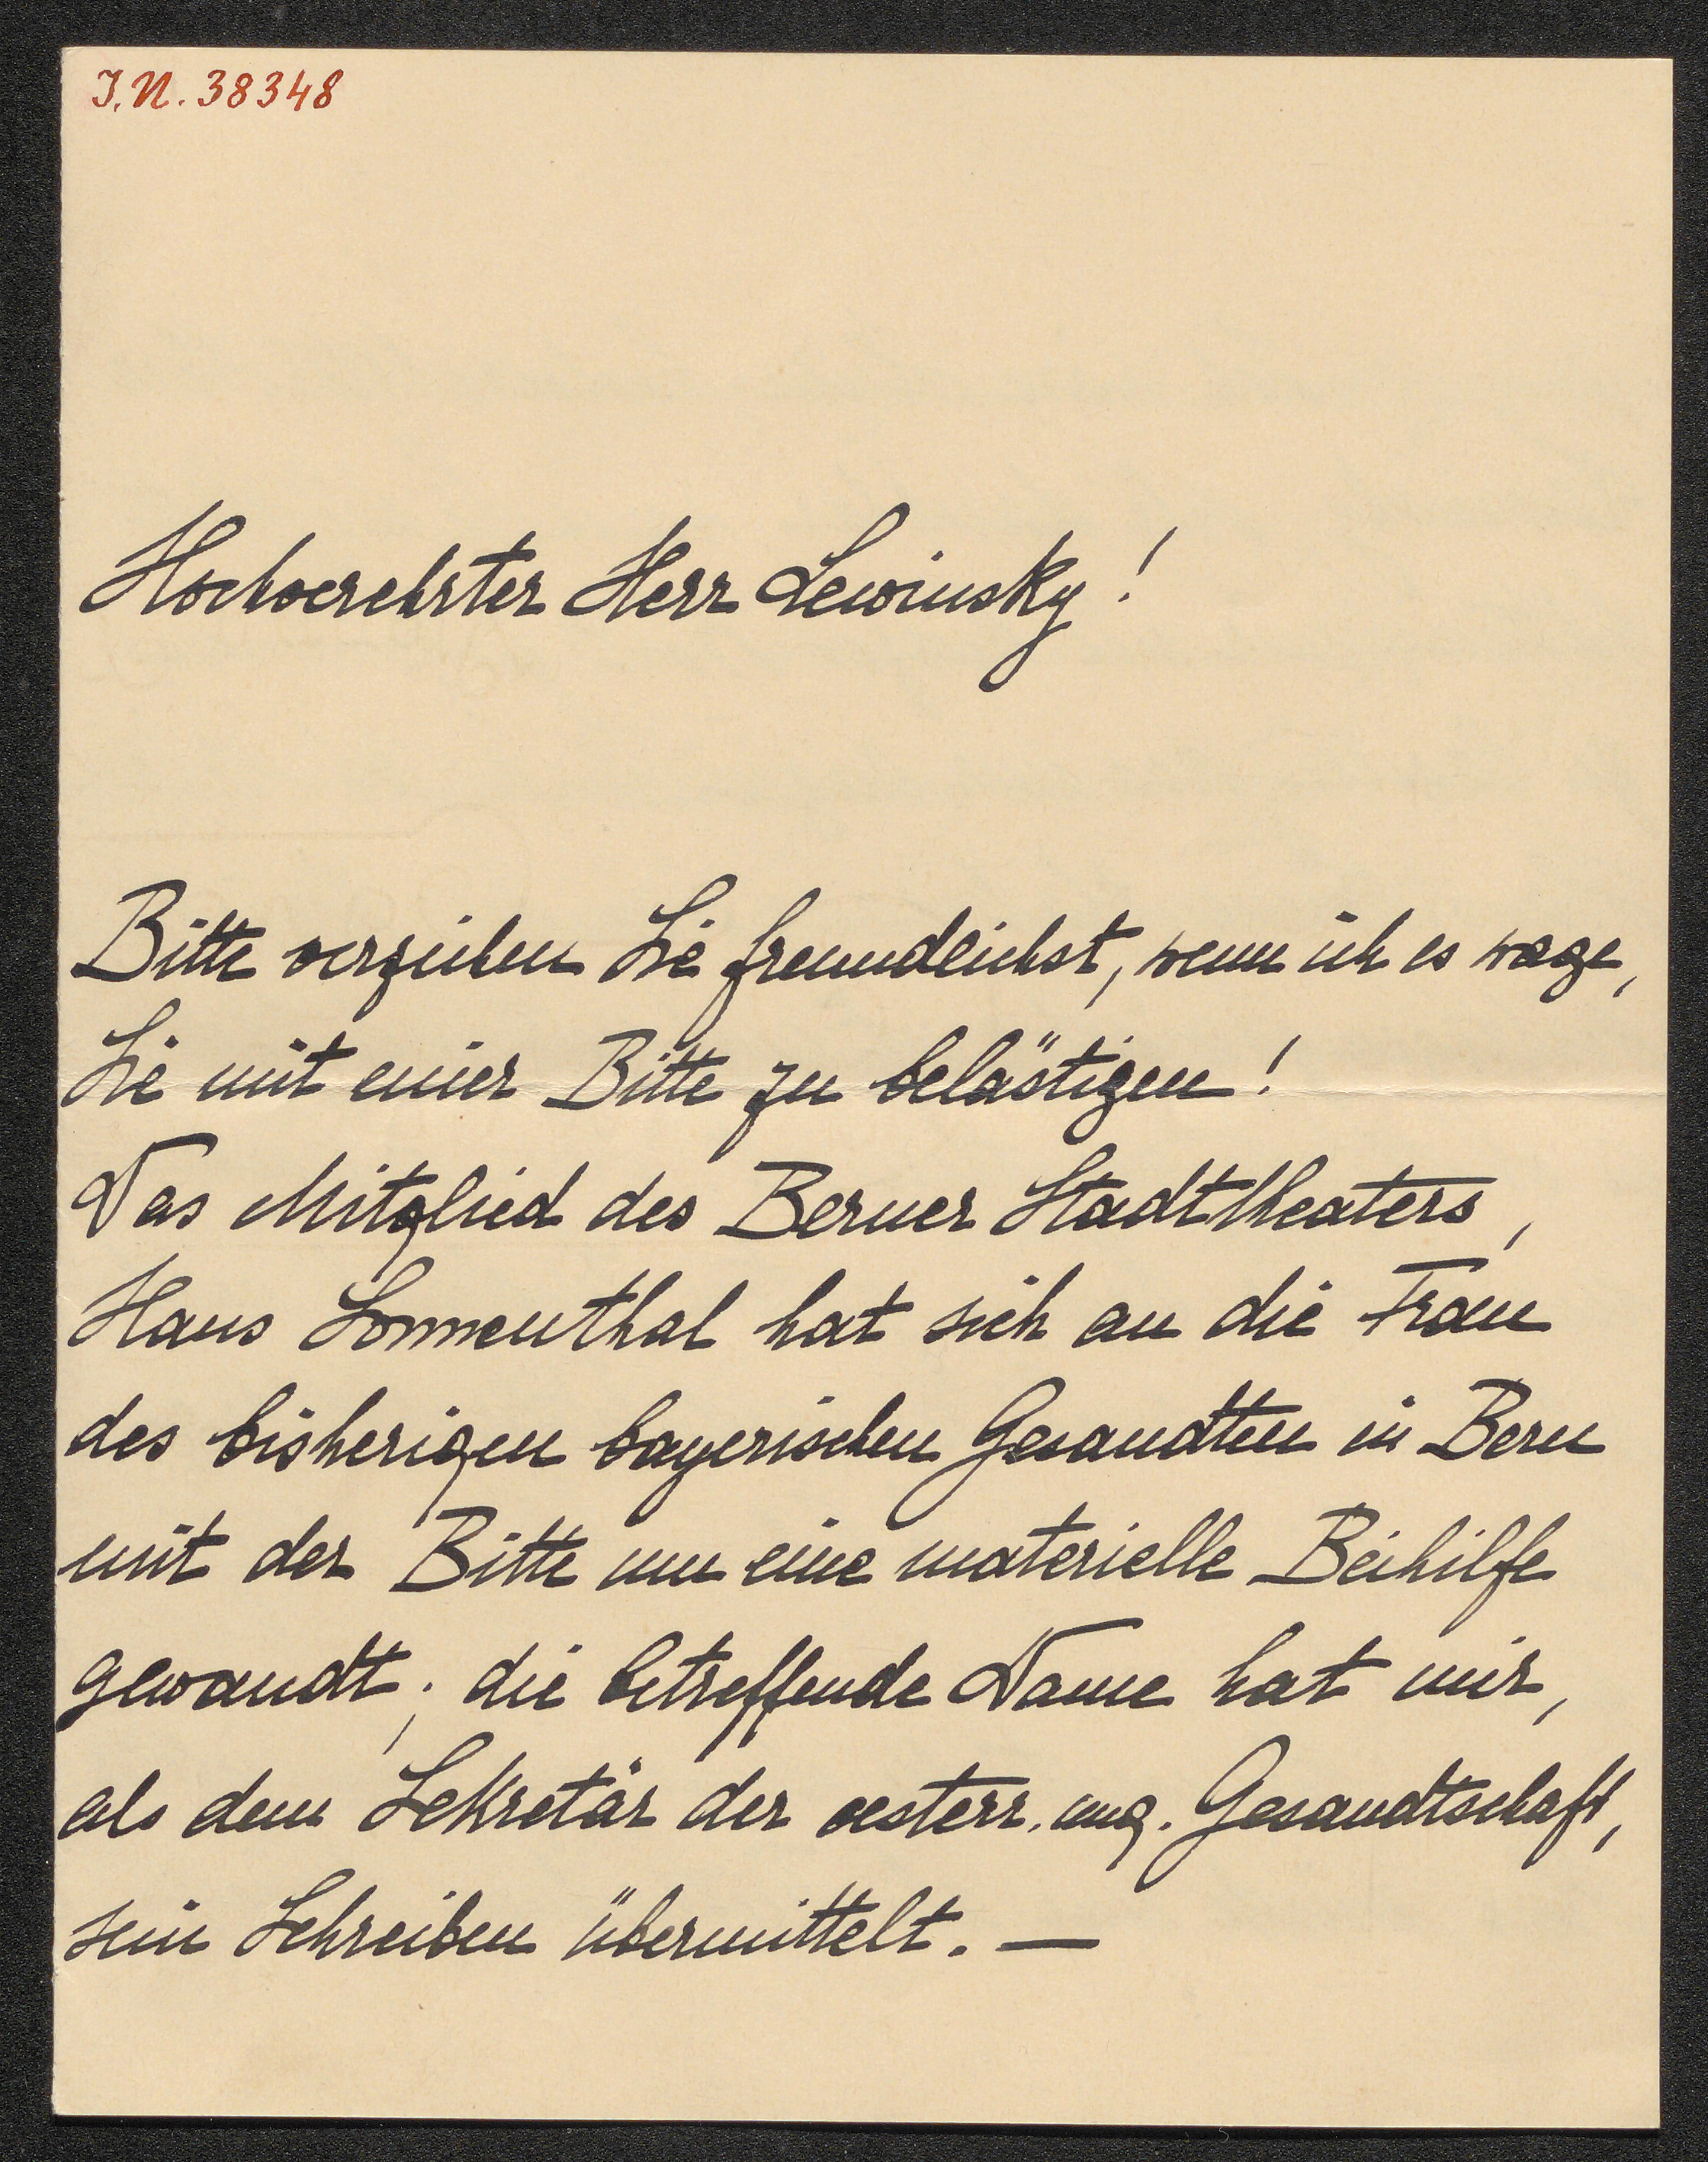 J.N. 38348
Hochverehrter Herr Lewinsky!
Bitte verzeihen Sie freundlichst, wenn ich es wage,
Sie mit einer Bitte zu belästigen!
Das Mitglied des Berner Stadttheaters,
Hans Sonnenthal hat sich an die Frau
des bisherigen bayerischen Gesandten in Bern
mit der Bitte um eine materielle Beihilfe
gewandt; die betreffende Dame hat mir,
als dem Sekretär der oesterr. ung. Gesandtschaft,
sein Schreiben übermittelt. —